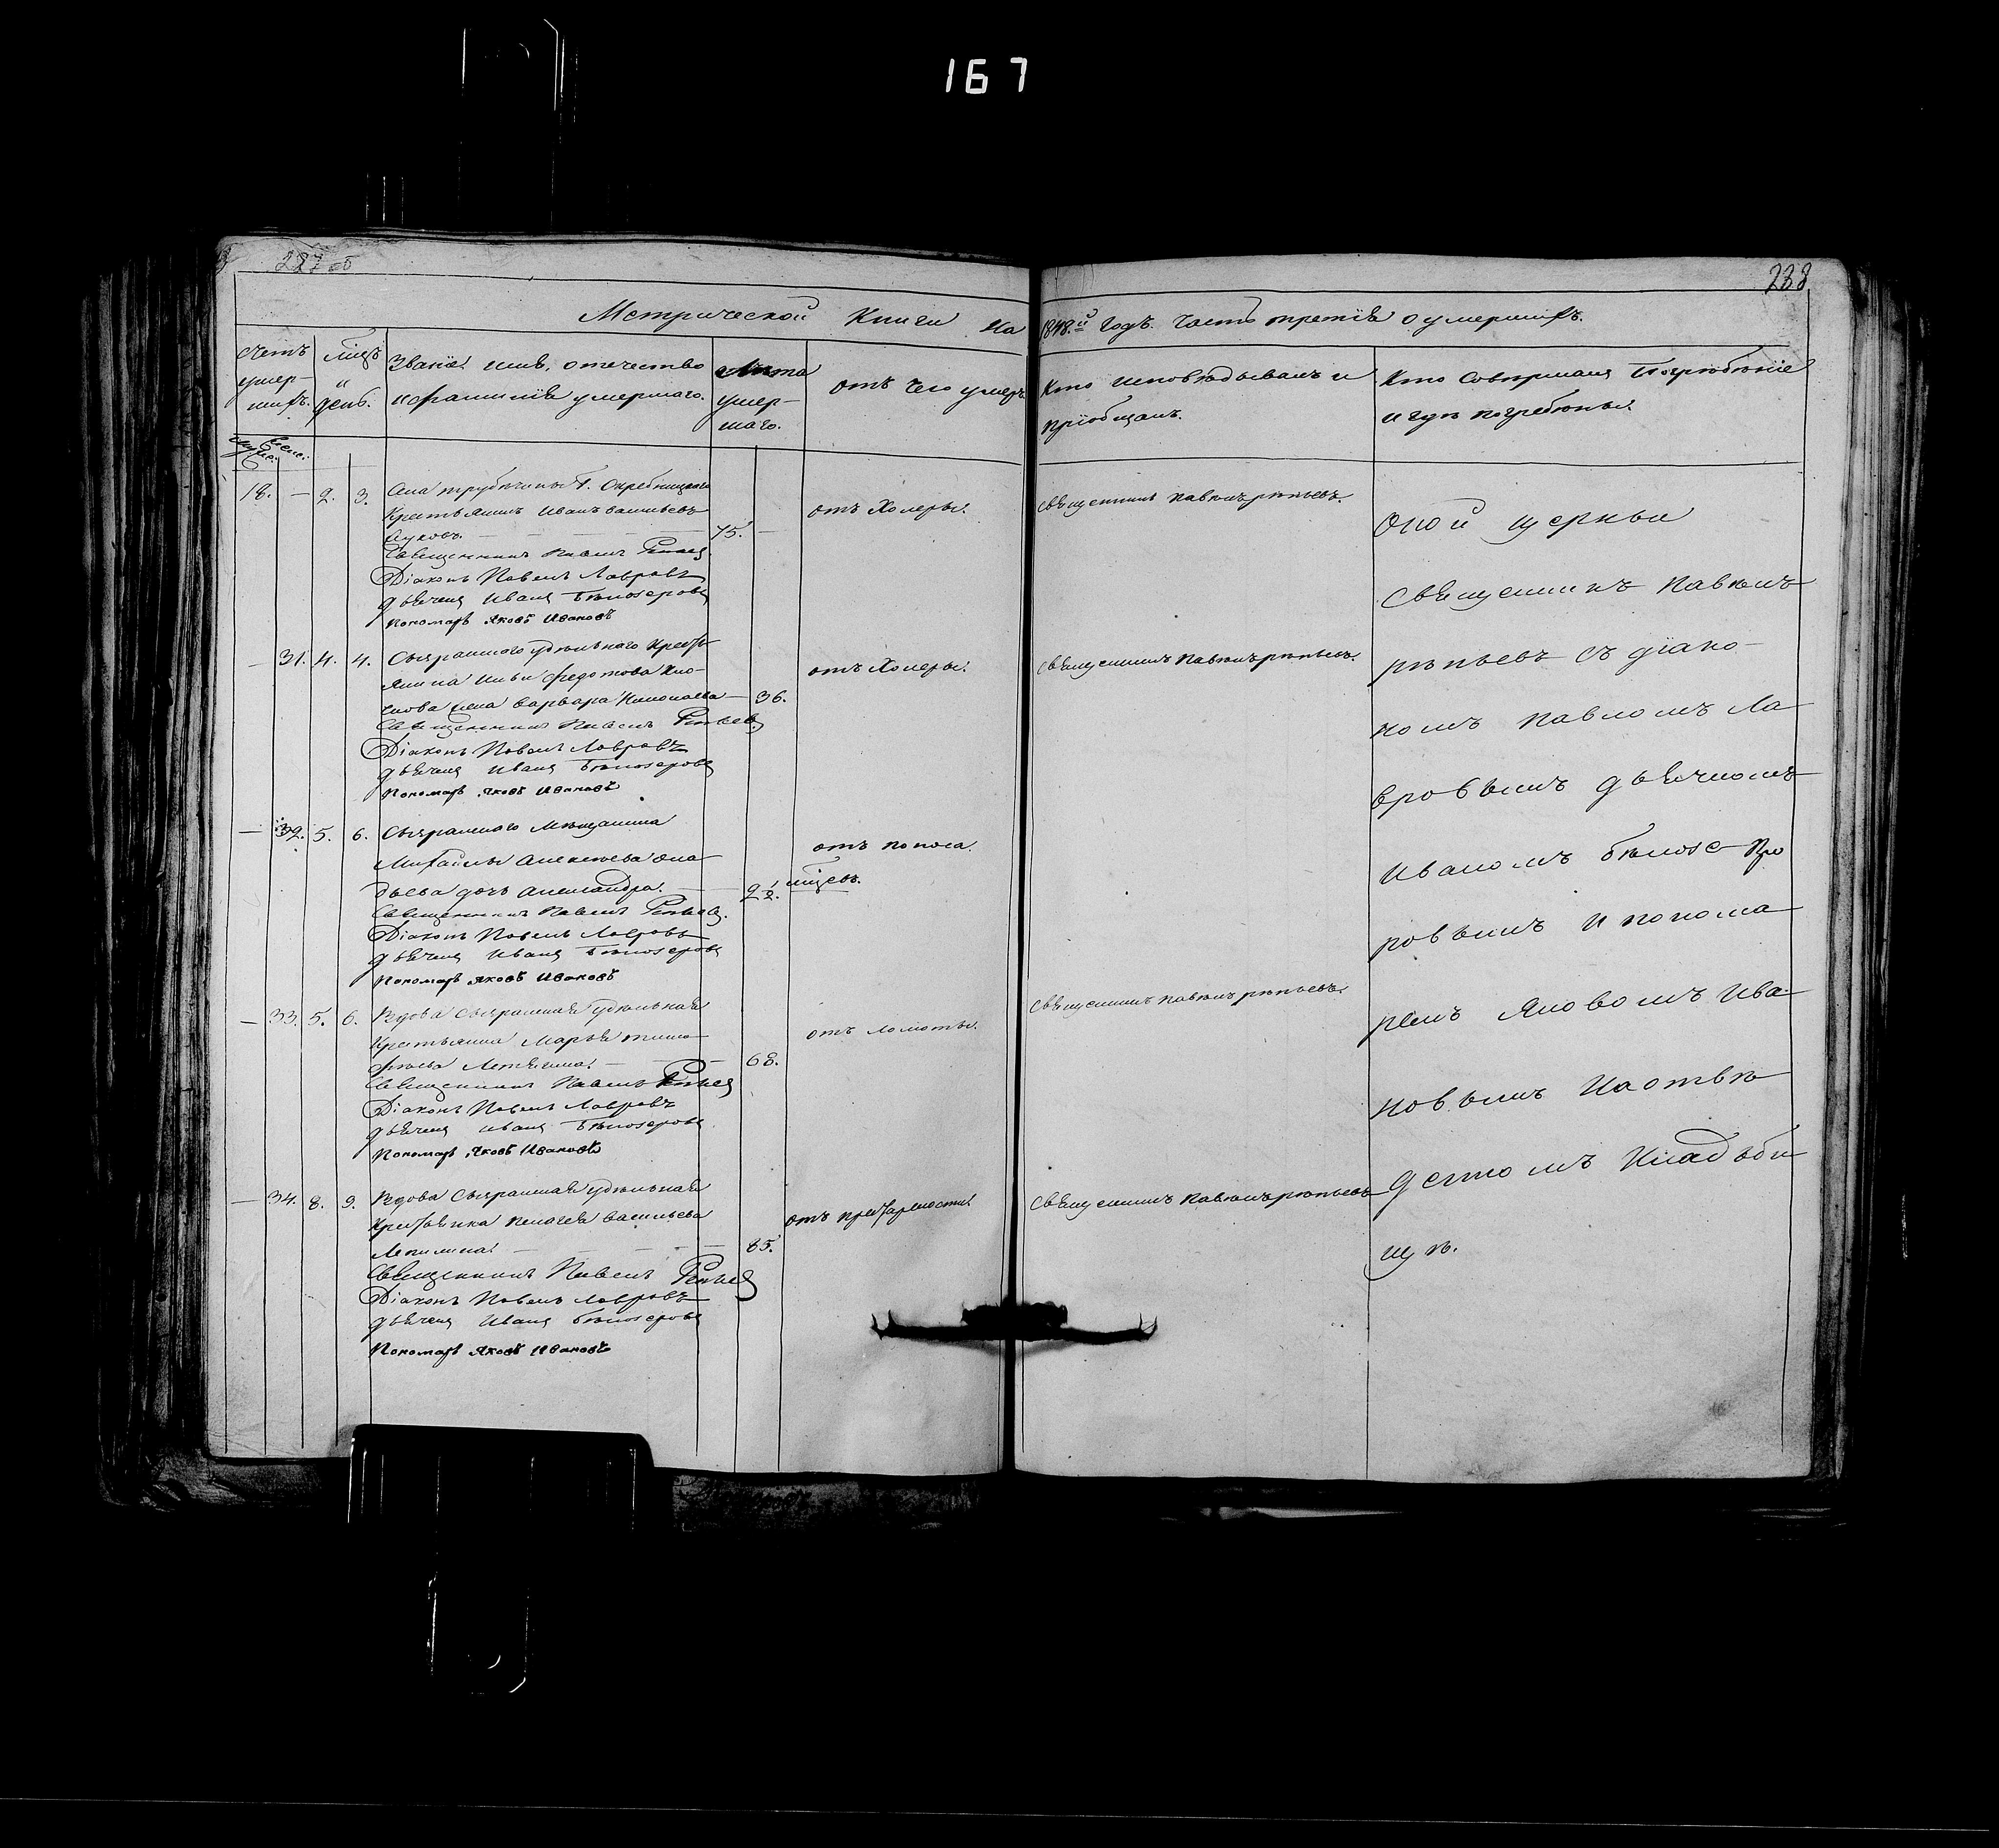 167
227 об
238
Метрической Книги на 1848й годъ. Часть третія о умершихъ.
Счетъ умер-шихъ.
Мцъ и день.
Званіе, имя, отечество
и фамилія умершаго.
Лѣта
умер-
шаго.
отъ чего умеръ
Кто исповѣдывалъ и
пріобщалъ.
Кто совершалъ Погребѣніе
и гдѣ погребѣны.
18. — 2. 3.
Крестьянинъ Иванъ Васильевъ
75. —
отъ Холеры.
Священникъ Павелъ Рѣпьевъ.
Священникъ Павелъ Рѣпьевъ
Діаконъ Павелъ Лавровъ
Дьячекъ Иванъ Бѣлозеровъ
Пономарь Яковъ Ивановъ
— 31. 4. 4.
Сызранского удѣльнаго Кресть
янина Ильи Федотова
жена Варвара Николаева — 36.
отъ Холеры.
Священникъ Павелъ Рѣпьевъ.
Священникъ Павелъ Рѣпьевъ
Діаконъ Павелъ Лавровъ
Дьячекъ Иванъ Бѣлозеровъ
Пономарь Яковъ Ивановъ
— 32. 5. 6.
Сызранскаго Мѣщанина
Михайлы Алексѣева
дочь Александра. — 2 1/2.
отъ поноса.
Священникъ Павелъ Рѣпьевъ.
Діаконъ Павелъ Лавровъ
Дьячекъ Иванъ Бѣлозеровъ
Пономарь Яковъ Ивановъ
— 33. 5. 6.
Вдова Сызранская удѣльная
Крестьянка Марья Тимо
фѣева — 68.
отъ ломоты.
Священникъ Павелъ Рѣпьевъ.
Священникъ Павелъ Рѣпьевъ
Діаконъ Павелъ Лавровъ
Дьячекъ Иванъ Бѣлозеровъ
Пономарь Яковъ Ивановъ
— 34. 8. 9.
Вдова Сызранская удѣльная
Крестьянка Пелагея Васильева
— 85.
отъ престарелости.
Священникъ Павелъ Рѣпьевъ
Священникъ Павелъ Рѣпьевъ
Діаконъ Павелъ Лавровъ
Дьячекъ Иванъ Бѣлозеровъ
Пономарь Яковъ Ивановъ
Оной церкви
Священникъ Павелъ
Рѣпьевъ съ діако-
номъ Павломъ Ла
вровымъ дьячкомъ
Иваномъ Бѣлозе
ровымъ и понома
ремъ Яковомъ Ива
новымъ на отвѣ
деномъ кладьби
щѣ.